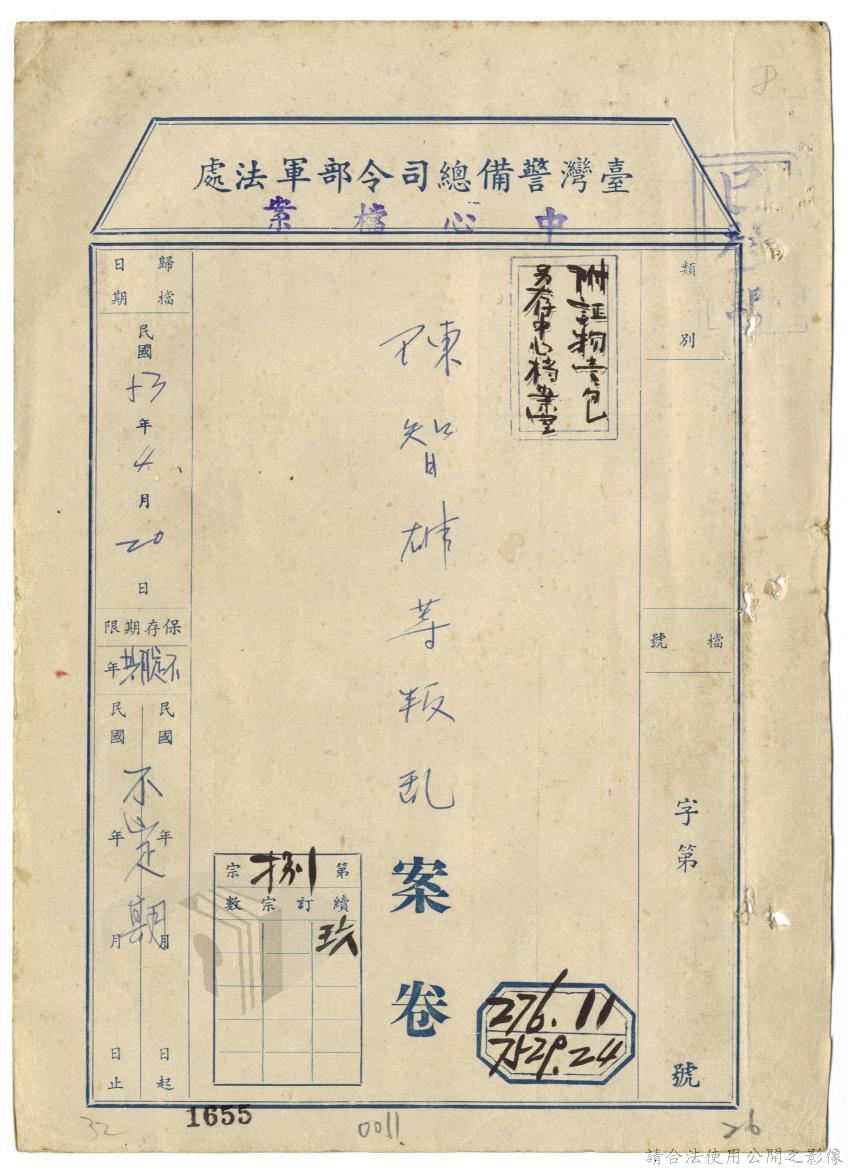 8
臺灣警備總司令部軍法處
中心檔案
已登記
類別
檔號
字第
號
附証物壹包
另存中心档案室
陳智雄等叛乱
案卷
276.11
7529.24
第捌宗
續訂宗數
玖
歸檔日期
民國53年4月20日
保存期限
不定期年
民國年月日起
民國年月日止
不定期
1655
32
0011
26
請合法使用公開之影像